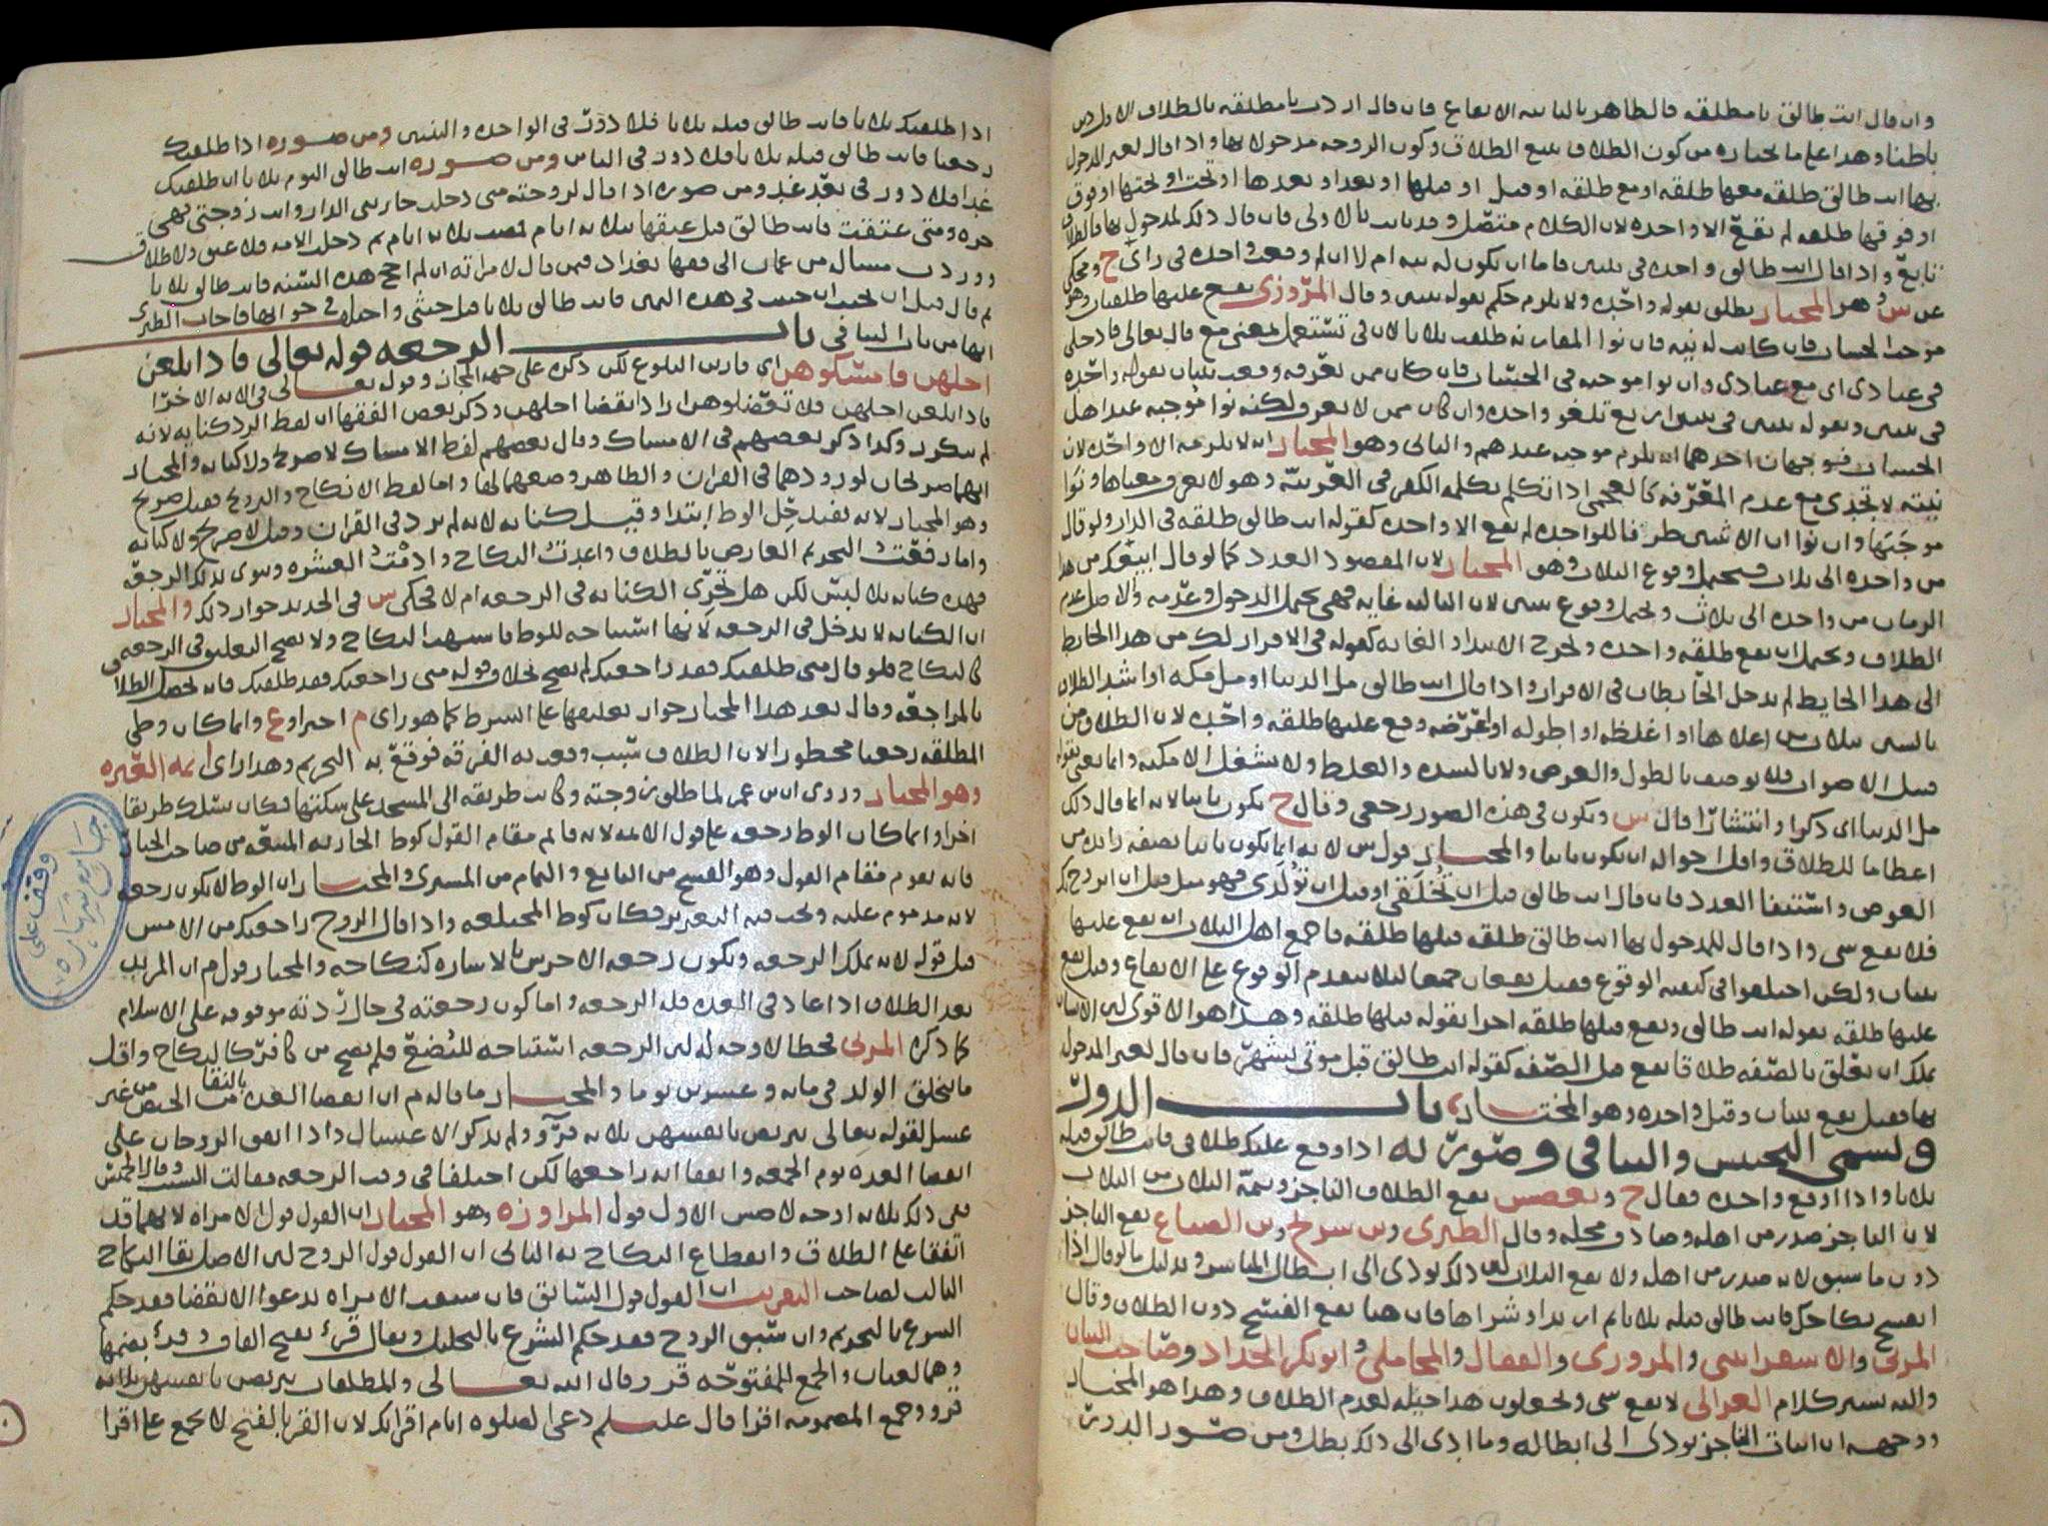 وان قال انت طالق يا مطلقه فالظاهر بالثانيه الايقاع فان قال اردت يا مطلقه بالطلاق الاول دين
باطنا وهذا على ما نختاره من كون الطلاق يتبع الطلاق وكون الزوجه مدخولا بها واذا قال لغير المدخول
بها انت طالق طلقه معها طلقه او مع طلقه او قبل او قبلها او بعد او بعدها او تحت او تحتها او فوق
او فوقها طلقه لم يقع الا واحده لان الكلام متصل وقد بانت بالاولى فان قال ذلك لمدخول بها فالطلاق
تابع واذا قال انت طالق واحده في ثنتين فاما ان يكون له نيه ام لا ان لم وقعت واحده في راي ح ومحكي
عن س وهو المختار يطلق بقوله واحده ولا يلزم حكم بقوله ثنتين وقال المروزي يقع عليها طلقتان وهو
موجب الحساب فان كانت له نيه فان نوا المقارنه طلقت ثلاثا لان في تستعمل بمعنى مع قال تعالى فادخلي
في عبادي اي مع عبادي وان نوا موجبه في الحساب فان كان ممن يعرفه وقعت ثنتان بقوله واحده
في ثنتين وبقوله ثنتين في ثنتين اربع تلغو واحده وان كان ممن لا يعرف ولكنه نوا موجبه عند اهل
الحساب فوجهان احدهما انه يلزم موجبه عندهم والثاني وهو المختار انه لا يلزمه الا واحده لان
نيته لا تجدي مع عدم المعرفه كالعجمي اذا تكلم بكلمه الكفر في العربيه وهو لا يعرف معناها ونوا
موجبها وان نوا ان الاثنتين ظرفا للواحده لم يقع الا واحده كقوله انت طالق طلقه في الدار ولو قال
من واحده الى ثلاث فيحتمل وقوع الثلاث وهو المختار لان المقصود العدد كما لو قال ابيعك من هذا
الرمان من واحده الى ثلاث ويحتمل وقوع ثنتين لان الثالثه غايه فهي تحتمل الدخول وعدمه والاصل عدم
الطلاق ويحتمل ان يقع طلقه واحده وتخرج الابتدا والغايه كقوله في الاقرار لك من هذا الحايط
الى هذا الحايط لم يدخل الحايطان في الاقرار واذا قال انت طالق مل الدنيا او مثل مكه او اشد الطلاق
بالسى ثلاث من اعلاها او اغلظه او اطوله او اعرضه وقع عليها طلقه واحده لان الطلاق من
قبيل الاصوات فلا يوصف بالطول والعرض ولا بالشده والغلظ ولا يشغل الامكنه وانما يعني بقوله
مل الدنيا اي ذكرا وانتشارا قال س ويكون في هذه الصور رجعي وقال ح يكون باينا لانه انما قال ذلك
اعظاما للطلاق واقل احواله ان يكون باينا والمختار قول س لانه انما يكون باينا بصفه زايده من
العوض واستيفا العدد فان قال انت طالق قبل ان تخلقي او قبل ان تولدي فهو مثل قبل ان اتزوج بك
فلا يقع شي واذا قال للمدخول بها انت طالق طلقه قبلها طلقه فاجمع اهل الثلاث انه يقع عليها
ثنتان ولكن اختلفوا في كيفيه الوقوع فقيل يقعان جميعا ليلا يتقدم الوقوع على الايقاع وقيل يقع
عليها طلقه بقوله انت طالق ويقع قبلها طلقه اخرا بقوله قبلها طلقه وهذا هو الاقوى لان الانسان
يملك ان يعلق بالصفه طلاقا يقع قبل الصفه كقوله انت طالق قبل موتي بشهر فان قال لغير المدخول
بها فقيل يقع ثنتان وقيل واحده وهو المختار باب الدور
ويسمى التحبيس والتنافي وصورته اذا وقع عليك طلاقي فانت طالق قبله
ثلاثا واذا اوقع واحده فقال ح وبعض س يقع الطلاق الناجز وتتمه الثلاث من الثلاث
لان الناجز صدر من اهله وصادف محله وقال الطبري وبن سريج وبن الصباغ يقع الناجز
دون ما سبق لانه صدر من اهله ولا يقع الثلاث لان ذلك يودي الى ابطال وبدليل ما لو قال اذا
انفسخ نكاحك فانت طالق قبله ثلاثا ثم ارتد او شراها فان هنا يقع الفسخ دون الطلاق وقال
المزني والاسفرايني والمروزي والقفال والمحاملي وابو بكر الحداد وصاحب البيان
واليه يشير كلام الغزالي لا يقع شي ويجعلون هذا حيله لعدم الطلاق وهذا هو المختار
ووجهه ان اثبات الناجز يودي الى ابطاله وما ادى الى ذلك بطل ومن صور الدور
اذا طلقتك ثلاثا فانت طالق قبله ثلاثا فلا دور في الواحده والثنتين ومن صوره اذا طلقتك
رجعيا فانت طالق قبله ثلاثا فلا دور في الباين ومن صوره انت طالق اليوم ثلاثا ان طلقتك
غدا فلا دور في بعد غد ومن صوره اذا قال لزوجته متى دخلت جاريتي الدار وانت زوجتي فهي
حره ومتى عتقت فانت طالق قبل عتقها بثلاثه ايام ثم دخلت الامه فلا عتق ولا طلاق
ووردت مساله من عمان الى فقها بغداد فيمن قال لامراته ان لم احج هذه السنه فانت طالق ثلاثا
ثم قال قبل ان يحنث ان حنثت في هذه اليمين فانت طالق ثلاثا قبل حنثي واختلف في جوابها فاجاب الطبري
انها من باب التنافي باب الرجعه قوله تعالى فاذا بلغن
اجلهن فامسكوهن اي قاربن البلوغ لكن ذكره على جهه المجاز وقوله تعالى في الايه الاخرا
فاذا بلغن اجلهن فلا تعضلوهن اراد انقضا اجلهن وذكر بعض الفقها ان لفظ الرد كنايه لانه
لم يتكرر وكذا ذكر بعضهم في الامساك وقال بعضهم لفظ الامساك لا صريح ولا كنايه والمختار
انهما صريحان لورودهما في القران والظاهر وضعهما لها واما لفظ الانكاح والتزويج فقيل صريح
وهو المختار لانه يفيد حل الوطا ابتدا وقيل كنايه لانه لم يرد في القران وقيل لا صريح ولا كنايه
واما رفعت التحريم العارض بالطلاق واعدت النكاح وادمت العشره ونوى بذلك الرجعه
فهذه كنايه بلا لبس لكن هل تجزي الكنايه في الرجعه ام لا فحكى س في الجديد جواز ذلك والمختار
ان الكنايه لا تدخل في الرجعه لانها استباحه للوطا فاشبهت النكاح ولا يصح التعليق في الرجعه
كالنكاح فلو قال متى طلقتك فقد راجعتك لم يصح بخلاف قوله متى راجعتك فقد طلقتك فانه يحصل الطلاق
بالمراجعه وقال بعد هذا المختار جواز تعليقها على الشرط كما هو راي م اخيرا وع وانما كان وطي
المطلقه رجعيا محظورا لان الطلاق سبب وقعت به الفرقه فوقع به التحريم وهذا راي ايمه العتره
وهو المختار وروي ان بن عمر لما طلق زوجته وكانت طريقه الى المسجد على مسكنها فكان يسلك طريقا
اخرا وانما كان الوطا رجعه على قول الايمه لانه قايم مقام القول كوط الجاريه المبيعه من صاحب الخيار
فانه يقوم مقام القول وهو الفسخ من البايع والتمام من المشتري والمختار ان الوطا لا يكون رجعه
لانه مذموم عليه ويجب فيه التعزير فكان كوط المختلعه واذا قال الزوج راجعتك من الامس
قبل قوله لانه يملك الرجعه وتكون رجعه الاخرس بالاشاره كنكاحه والمختار قول م ان المرتد
بعد الطلاق اذا عاد في العده فله الرجعه واما كون رجعته في حال ردته موقوفه على الاسلام
كما ذكره المزني فخطا لا وجه له لان الرجعه استباحه للبضع فلم تصح من كافر كالنكاح واقل
ما يتخلق الولد في مايه وعشرين يوما والمختار ما قاله م ان انقضا العده بالنقا من الحيض من غير
غسل لقوله تعالى يتربصن بانفسهن ثلاثه قرو ولم يذكر الاغتسال واذا اتفق الزوجان على
انقضا العده يوم الجمعه واتفقا انه راجعها لكن اختلفا في وقت الرجعه فقالت السبت وقال الخميس
ففي ذلك ثلاثه اوجه لاص س الاول قول المراوزه وهو المختار ان القول قول الامراه لانهما قد
اتفقا على الطلاق وانقطاع النكاح به الثاني ان القول قول الزوج لان الاصل بقا النكاح
الثالث لصاحب التقريب ان القول قول السابق فان سبقت الامراه بدعوا الانقضا فقد حكم
الشرع بالتحريم وان سبق الزوج فقد حكم الشرع بالتحليل ويقال قرء بفتح القاف وقرء بضمها
وهما لغتان والجمع للمفتوحه قرو قال الله تعالى والمطلقات يتربصن بانفسهن ثلاثه
قرو وجمع المضمومه اقرا قال عليلم دعي الصلوه ايام اقرائك لان القرء بالفتح لا يجمع على اقرا
وقف على
جامع شهاره